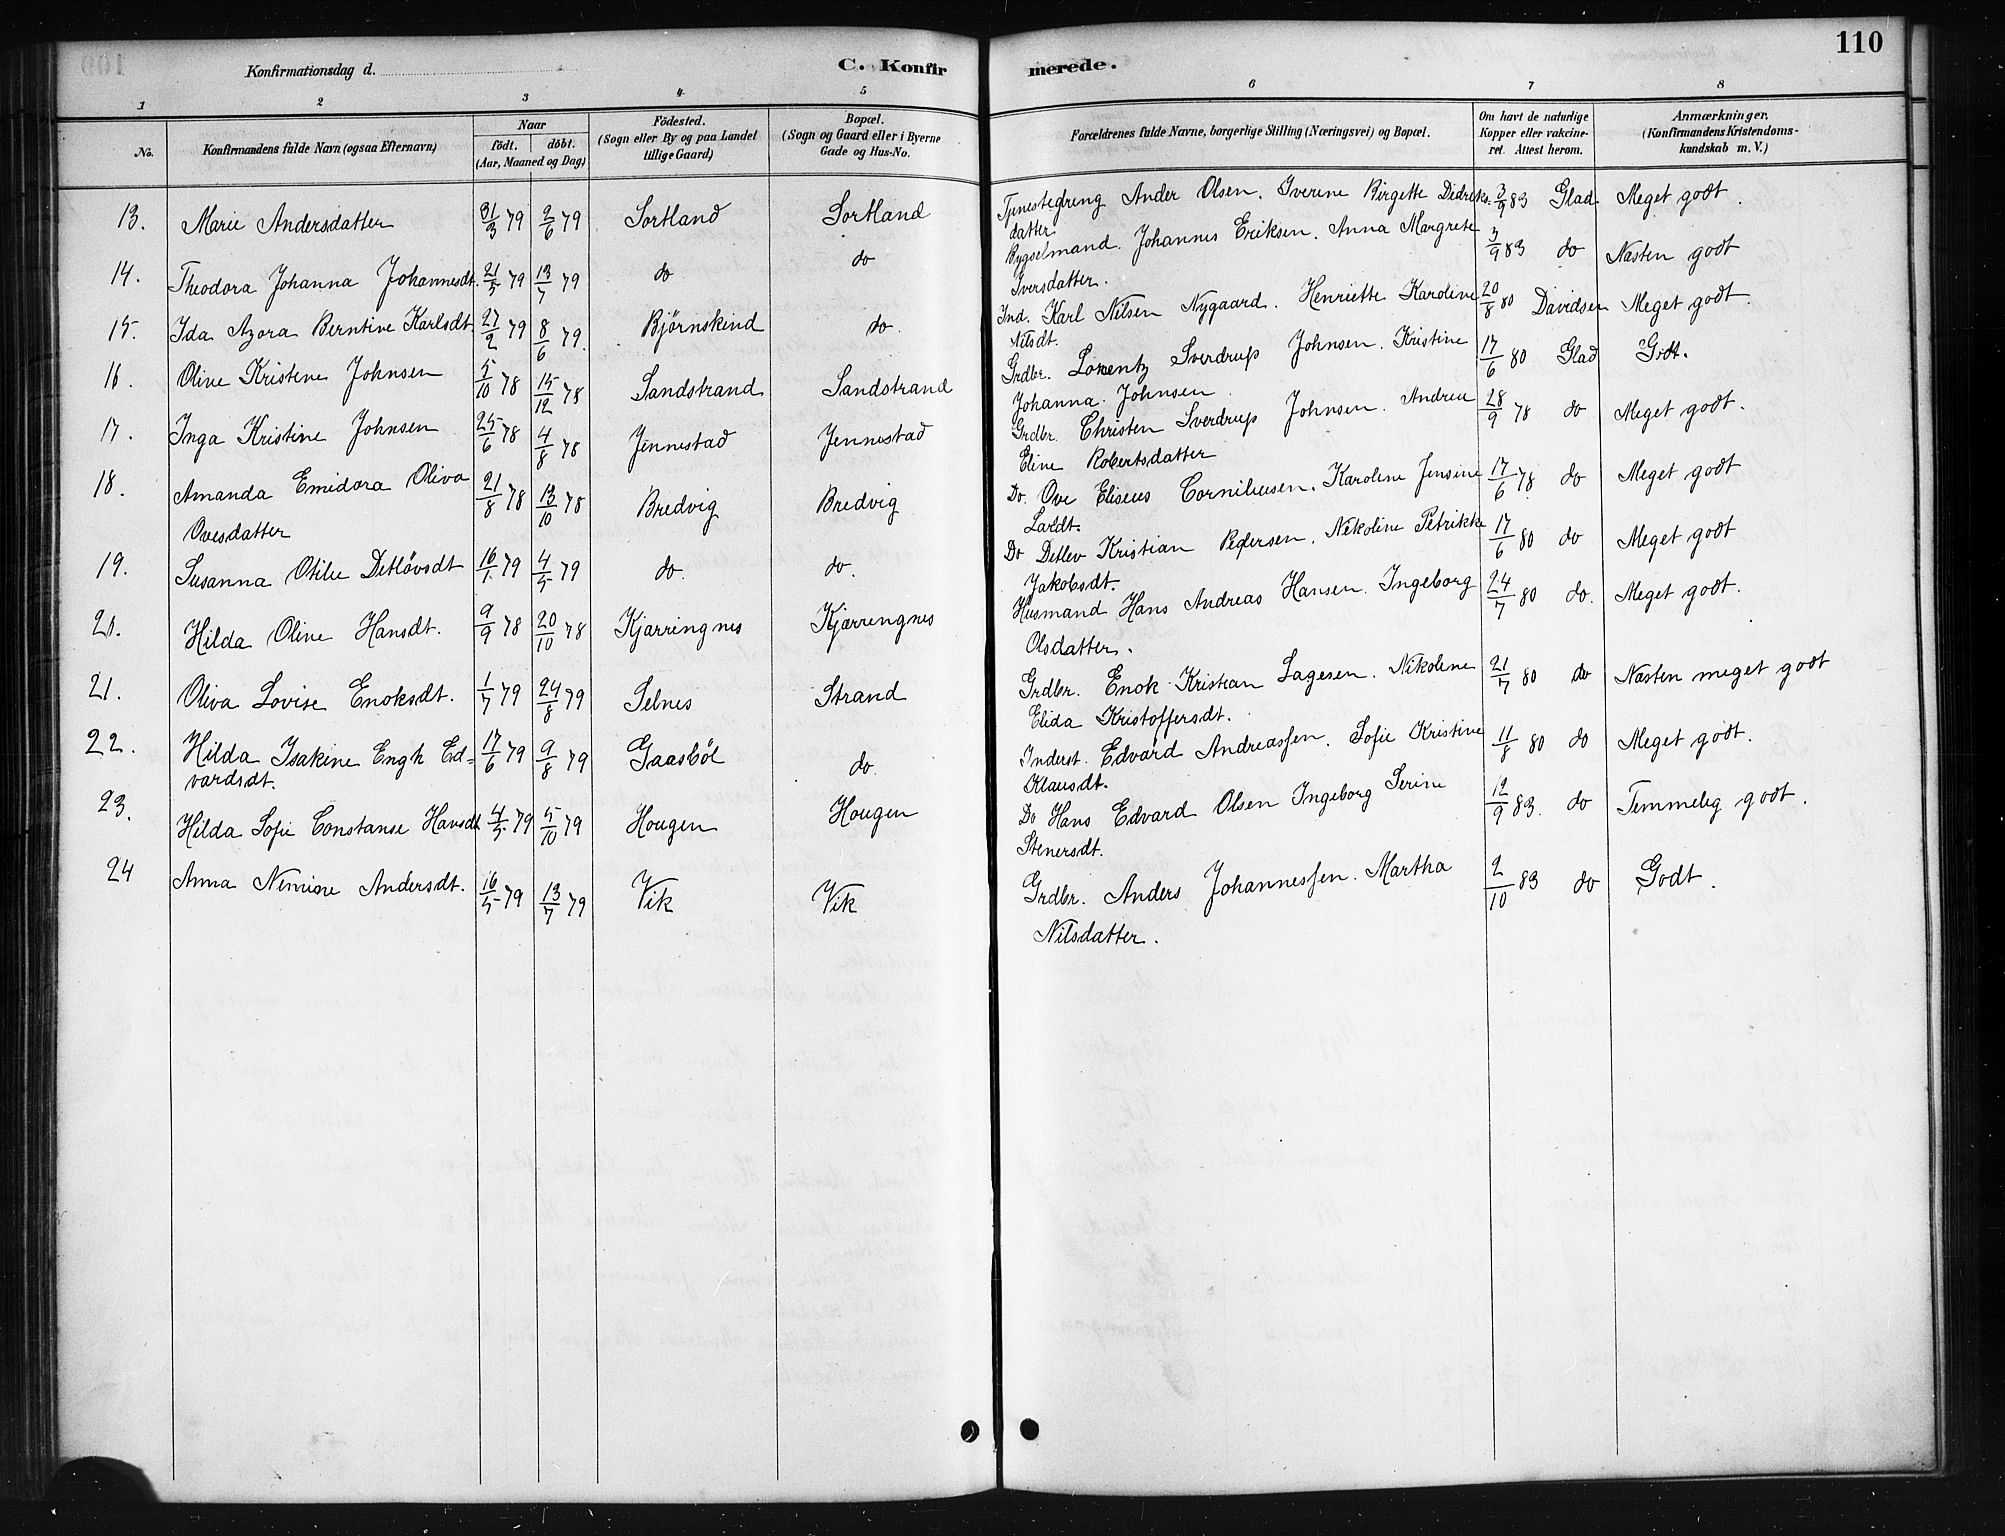 110
Konfirmationsdag d.
C. Konfirmerede.
1 2 3 4 5 6 7 8
No.
Konfirmandens fulde Navn (ogsaa Efternavn)
Naar
födt. döbt.
(Aar, Maaned og Dag)
Födested.
(Sogn eller By og paa Landet
tillige Gaard)
Bopæl.
(Sogn og Gaard eller i Byerne
Gade og Hus-No.
Forældrenes fulde Navne, borgerlige Stilling (Næringsvei) og Bopæl.
Om havt de naturlige
Kopper eller vakcine-
ret. Attest herom.
Anmærkninger.
(Konfirmandens Kristendoms-
kundskab m. V.)
13. Marie Andersdatter 31/3 79 2/6 79 Sortland Sortland Tjenestedreng Ander Olsen. Iverine Birgette Didriks- 3/9 83 Glad Meget godt.
datter
14. Theodora Johanna Johannesdt. 21/5 79 13/7 79 do do Bygselmand. Johannes Eriksen. Anna Margrete 3/9 83 do Næsten godt
Iversdatter.
15. Ida Azora Berntine Karlsdt. 27/2 79 8/6 79. Bjørnskind do. Ind. Karl Nilsen Nygaard. Henriette Karoline 20/8 80 Davidsen Meget godt.
Nilsdt.
16. Oline Kristine Johnsen 5/10 78 15/12 78 Sandstrand Sandstrand Grdbr. Lorentz Sverdrup Johnsen. Kristine 17/6 80 Glad Godt.
Johanna Johnsen
17. Inga Kristine Johnsen 25/6 78 4/8 78 Jennestad Jennestad Grdbr. Christen Sverdrup Johnsen. Andrea 28/9 78 do Meget godt.
Eline Robertsdatter
18. Amanda Emidora Oliva 21/8 78 13/10 78 Bredvig Bredvig Do. Ove Eliseus Corneliusen. Karoline Jensine 17/6 78 do Meget godt
Ovesdatter
19. Susanna Otilie Detløvsdt 16/1 79 4/5 79 do. do. Do Detlev Kristian Pedersen. Nikoline Petrikke 17/6 80 do Meget godt
Jakobsdt.
20. Hilda Oline Hansdt. 9/9 78 20/10 78 Kjærringnes Kjærringnes Husmand Hans Andreas Hansen. Ingeborg 24/7 80 do. Meget godt.
Olsdatter.
21. Oliva Lovise Enoksdt. 1/7 79 24/8 79 Selnes Strand Grdbr. Enok Kristian Lagesen. Nikoline 21/7 80 do Næsten meget godt
Elida Kristoffersdt.
22. Hilda Isakine Engh Ed= 17/6 79 9/8 79 Gaasböl do. Inderst. Edvard Andreassen. Sofie Kristine 11/8 80 do Meget godt.
vardsdt. Klausdt.
23. Hilda Sofie Constanse Hansdt 4/5 79 5/10 79 Hougen Hougen Do Hans Edvard Olsen Ingeborg Serine 12/9 83. do Temmelig godt.
Stenersdt.
24 Anna Nimine Andersdt. 16/5 79 13/7 79 Vik Vik Grdbr. Anders Johannessen. Martha 2/10 83 do Godt.
Nilsdatter.